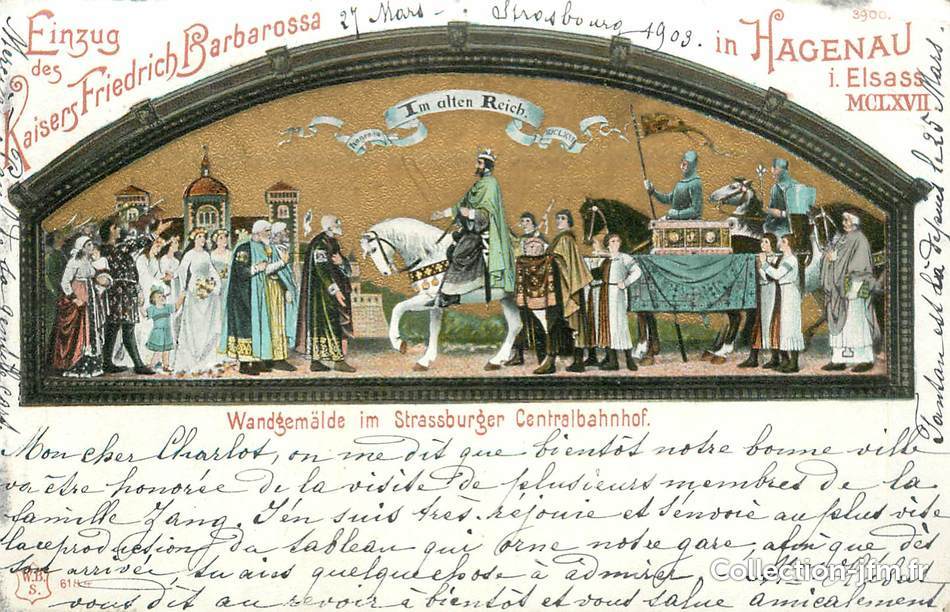 Einzug
des
Kaisers Friedrich Barbarossa
27 Mars - Strasbourg 1903.
3900.
in HAGENAU
i. Elsass
MCLXVII
Im alten Reich.
Hagenau
MCLXVII
Wandgemälde im Strassburger Centralbahnhof.
Mon cher Charlot, on me dit que bientôt notre bonne ville
va être honorée de la visite de plusieurs membres de la
famille Zang. J'en suis très réjouie et t'envoie au plus vite
la reproduction du tableau qui orne notre gare, afin que dès
ton arrivée, tu aies quelque chose à admirer.
vous dit au revoir à bientôt et vous salue amicalement
Tantar est là depuis le 25 Mars.
Merci
la gentille cart
W.B.
S.
Collection-jfm.fr